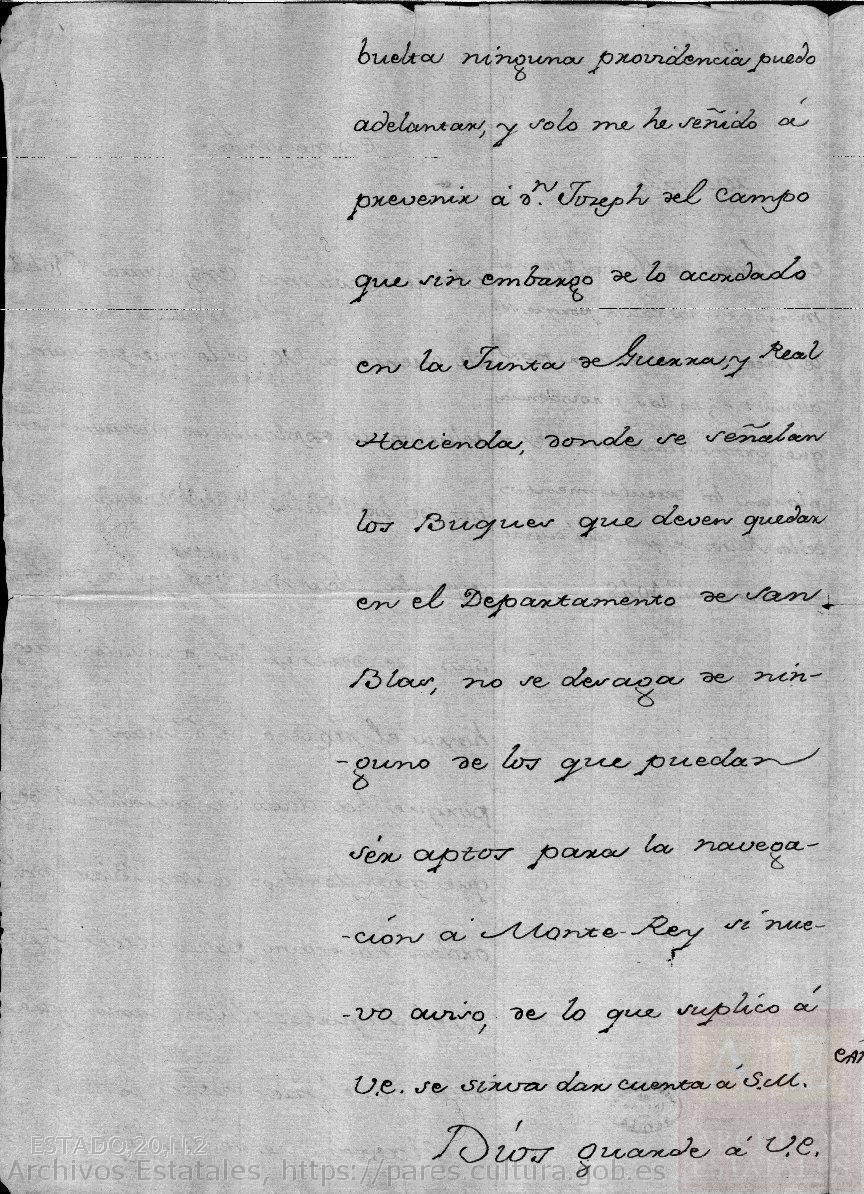 buelta ninguna providencia puedo
adelantar, y solo me he señido á
prevenir á d.n Joseph del Campo
que sin embargo de lo acordado
en la Junta de Guerra, y Real
Hacienda, donde se señalan
los Buques que deven quedar
en el Departamento de San
Blas, no se desaga de nin-
-guno de los que puedan
sér aptos para la navega-
-ción á Monte-Rey sí nue-
-vo aviso, de lo que suplíco á
V.E. se sirva dar cuenta á S.M.
Díos guarde á V.E.
ESTADO,20,N.2
Archivos Estatales, https://pares.cultura.gob.es